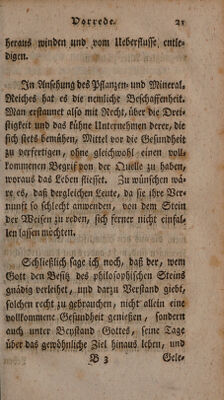 Vorrede. 21
heraus winden und vom Ueberflusse entle-
digen.
In Ansehung des Pflanzen- und Mineral-
Reiches hat es die nemliche Beschaffenheit.
Man erstaunet also mit Recht, über die Drei-
stigkeit und das kühne Unternehmen derer, die
sich stets bemühen, Mittel vor die Gesundheit
zu verfertigen, ohne gleichwohl einen voll-
kommenen Begrif von der Quelle zu haben,
woraus das Leben fliesset. Zu wünschen
wäre es, daß dergleichen Leute, da sie ihre Ver-
nunft so schlecht anwenden, von dem Stein
der Weisen zu reden, sich ferner nicht einfal-
len lassen mochten.
Schließlich sage ich noch, daß der, wem
Gott den Besitz des philosophischen Steins
gnädig verleihet, und darzu Verstand giebt,
solchen recht zu gebrauchen, nicht allein eine
vollkommene Gesundheit geniessen, sondern
auch unter Beystand Gottes, seine Tage
über das gewöhnliche Ziel hinaus leben, und
B 3 Gele-